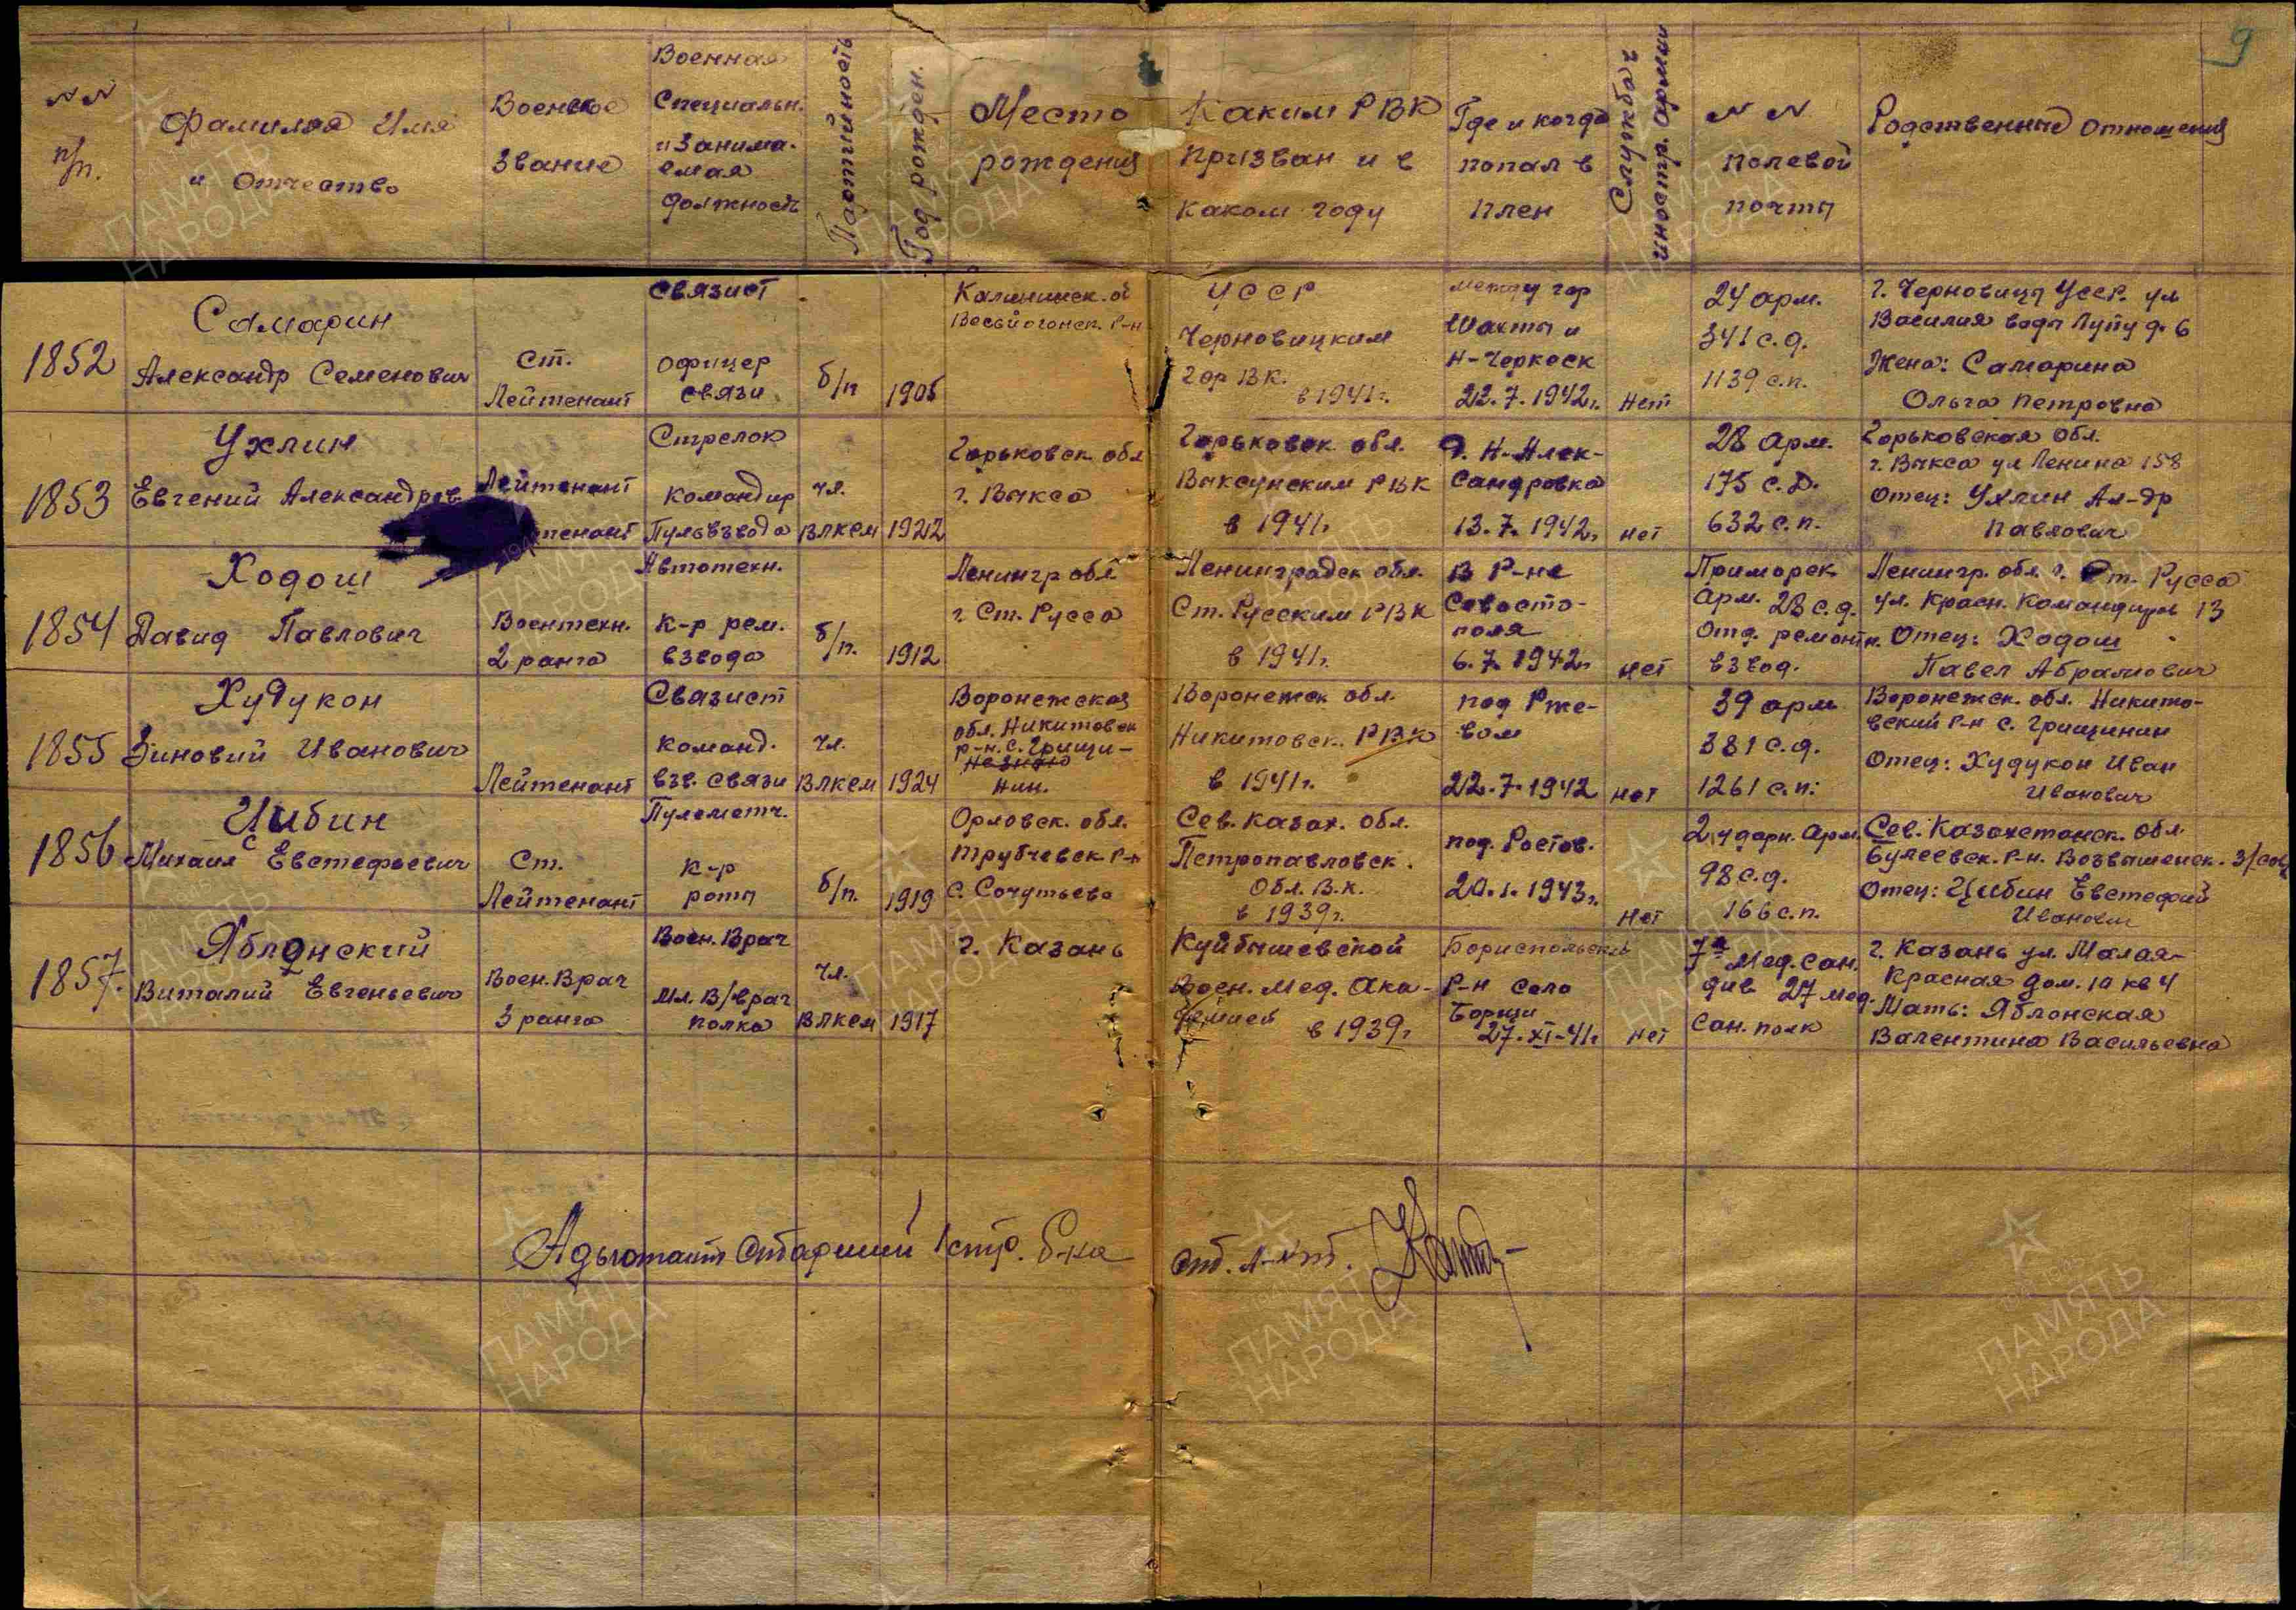 9
№ №
п/п.
Фамилия Имя
и Отчество
Военное
Звание
Военная
Специальн.
и Занима-
емая
должность
Партийность
Год рожден.
Место
рождения
Каким РВК
призван и в
каком году
Где и когда
попал в
плен
Служба в
иностр. армии
№ №
полевой
почты
Родственные отношения
1852
Самарин
Александр Семенович
Ст.
Лейтенант
Связист
офицер
связи
б/п
1905
Калининск. об
Весьйогонск. р-н
УССР
Черновицким
Гор ВК.
в 1941г.
между гор
Шахты и
Н-Черкаск
22.7.1942г.
Нет
24 арм.
341 с.д.
1139 с.п.
г. Черновицы УССР. ул
Василия воды Лупу д. 6
Жена: Самарина
Ольга Петровна
1853
Ухлин
Евгений Александров
Лейтенант
тенант
Стрелок
командир
Пульвзвода
чл.
ВЛКСМ
1922
Горьковск. обл
г. Выкса
Горьковск обл.
Выксунским РВК
в 1941г.
Н-Алек-
сандровка
13.7.1942г.
нет
28 арм.
175 с.д.
632 с.п.
Горьковская обл.
г. Выкса ул Ленина 158
отец: Ухлин Ал-др
Павлович
1854
Ходош
Давид Павлович
Воентехн.
2 ранга
Автотехн.
к-р рем.
взвода
б/п.
1912
Ленингр обл
г. Ст. Русса
Ленинградск обл.
Ст. Русским РВК
в 1941г.
В Р-не
Севасто-
поля
6.7.1942г
нет
Приморск
арм. 28 с.д.
Отд. ремонтн.
взвод.
Ленингр. обл. г. Ст. Русса
ул. Красн. Командиров 13
Отец: Ходош
Павел Абрамович
1855
Худукон
Зиновий Иванович
Лейтенант
Связист
команд.
взв. связи
чл.
ВЛКСМ
1924
Воронежская
обл. Никитовск
р-н. с. Грищи-
не знаю
нин.
Воронежск обл.
Никитовск. РВК
в 1941г.
под Рже-
вом
22.7.1942
нет
39 арм
381 с.д.
1261 с.п.
Воронежск. обл. Никито-
вский р-н с. Грищинин
Отец: Худукон Иван
Иванович
1856
Цибин
Михаил Евстефьевич
Ст.
Лейтенант
Пулеметч.
к-р
роты
б/п.
1919
Орловск. обл.
Трубчевск р-н
с. Сочутьево
Сев. Казах. обл.
Петропавловск.
Обл. В.К.
в 1939г.
под. Ростов.
20.1.1943г.
нет
2 ударн. арм.
98 с.д.
166 с.п.
Сев. Казахстанск. обл
Булеевск. р-н. Возвышенск. з/сов
Отец: Цибин Евстефий
Иванович
1857.
Яблонский
Виталий Евгеньевич
Воен. Врач
3 ранга
Воен. Врач
Мл. В/врач
полка
чл.
ВЛКСМ
1917
г. Казань
Куйбышевской
Воен. Мед. Ака-
демией
в 1939г
Бориспольский
р-н село
Борщи
27-XI-41г
нет
7я Мед. сан.
див 27 мед.
сан. полк
г. Казань ул. Малая-
Красная дом. 10 кв 4
Мать: Яблонская
Валентина Васильевна
Адьютант старший 1 стр. б-на
ст. л-нт.
ПАМЯТЬ
НАРОДА